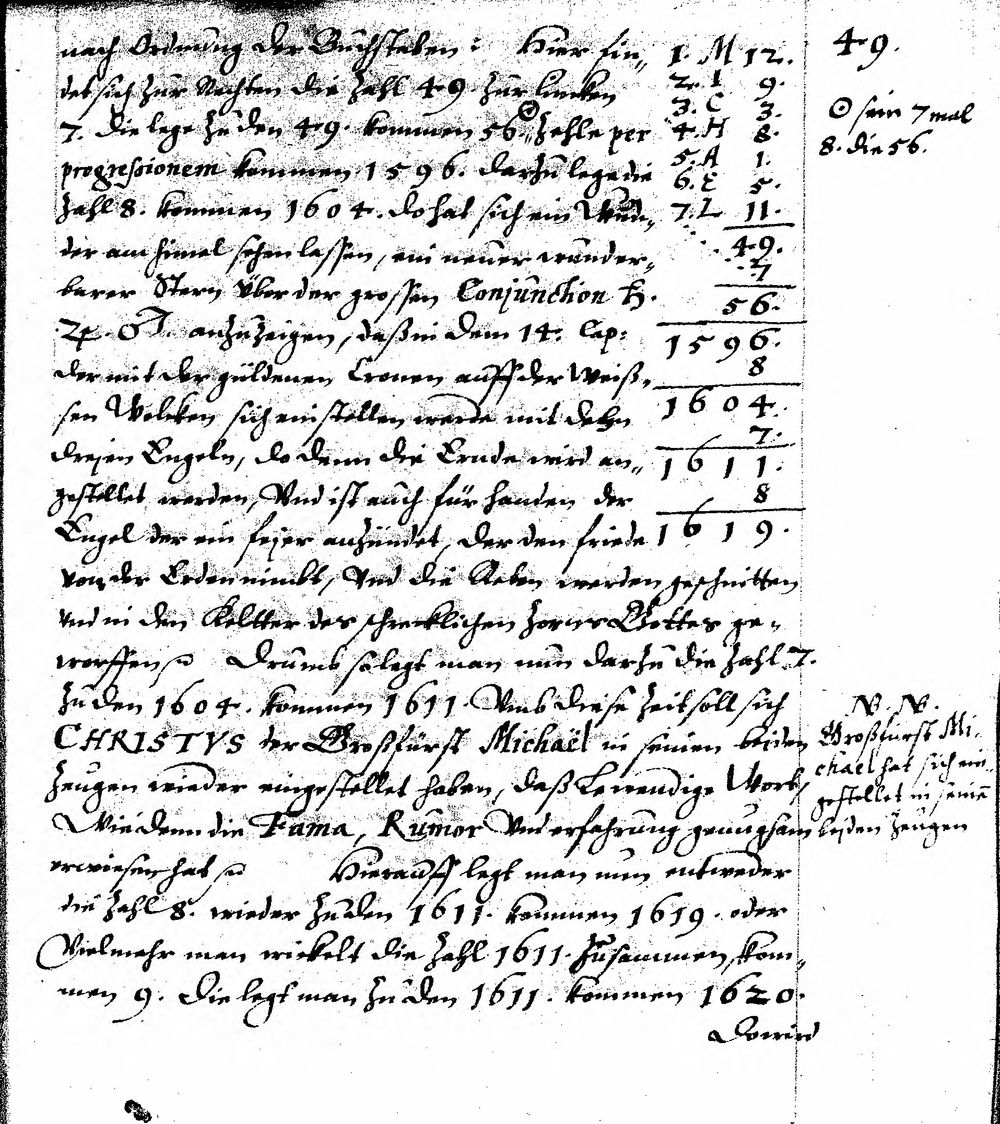 nach Ordnung der Buchstaben: Hier fin-
det sich zur Rechten die Zahl 49 zur lincken
7. die lege zu den 49. kommen 56. ☉ Zehle per
progressionem kommen 1596. darzu lege die
Zahl 8. kommen 1604. do hat sich ein Wun-
der am himel sehen lassen, ein neuer wunder-
barer Stern über der grossen Conjunction ♄.
♃. ♂. anzuzeigen, daß in dem 14. Cap:
der mit der güldenen Cronen auff der Weiß-
sen Wolcken sich einstellen werde mit dehn
dreien Engeln, do denn die Ernde wird an-
gestellet werden, Und ist auch für handen der
Engel der ein fejer anzündet, der den friede
von der Erden nimbt, Und die Reben werden geschnitten
und in den Keltter des schrecklichen Zornes Gottes ge-
worffen Drumb so legt man nun darzu die Zahl 7.
zu den 1604. kommen 1611. Umb diese Zeit soll sich
CHRISTVS der Großfürst Michaël in seinen beiden
Zeugen wieder eingestellet haben, daß Lewendige Wort,
Wie denn die Fama, Rumor Und erfahrung genugsam
erwiesen hat Hierauff legt man nun entweder
die Zahl 8. wieder zu den 1611. kommen 1619. oder
Vielmehr man wickelt die Zahl 1611. zusammen, kom-
men 9. Die legt man zu den 1611. kommen 1620.
Do wird
1. M 12.
2. I 9.
3. C 3.
4. H 8.
5. A 1.
6. E 5.
7. L 11.
49.
7
56.
1596.
8
1604.
7.
1611.
8
1619.
49.
☉ sein 7 mal
8. die 56.
NB. NB.
Großfürst Mi-
chael hat sich ein-
gestellet in seinen
beiden Zeugen